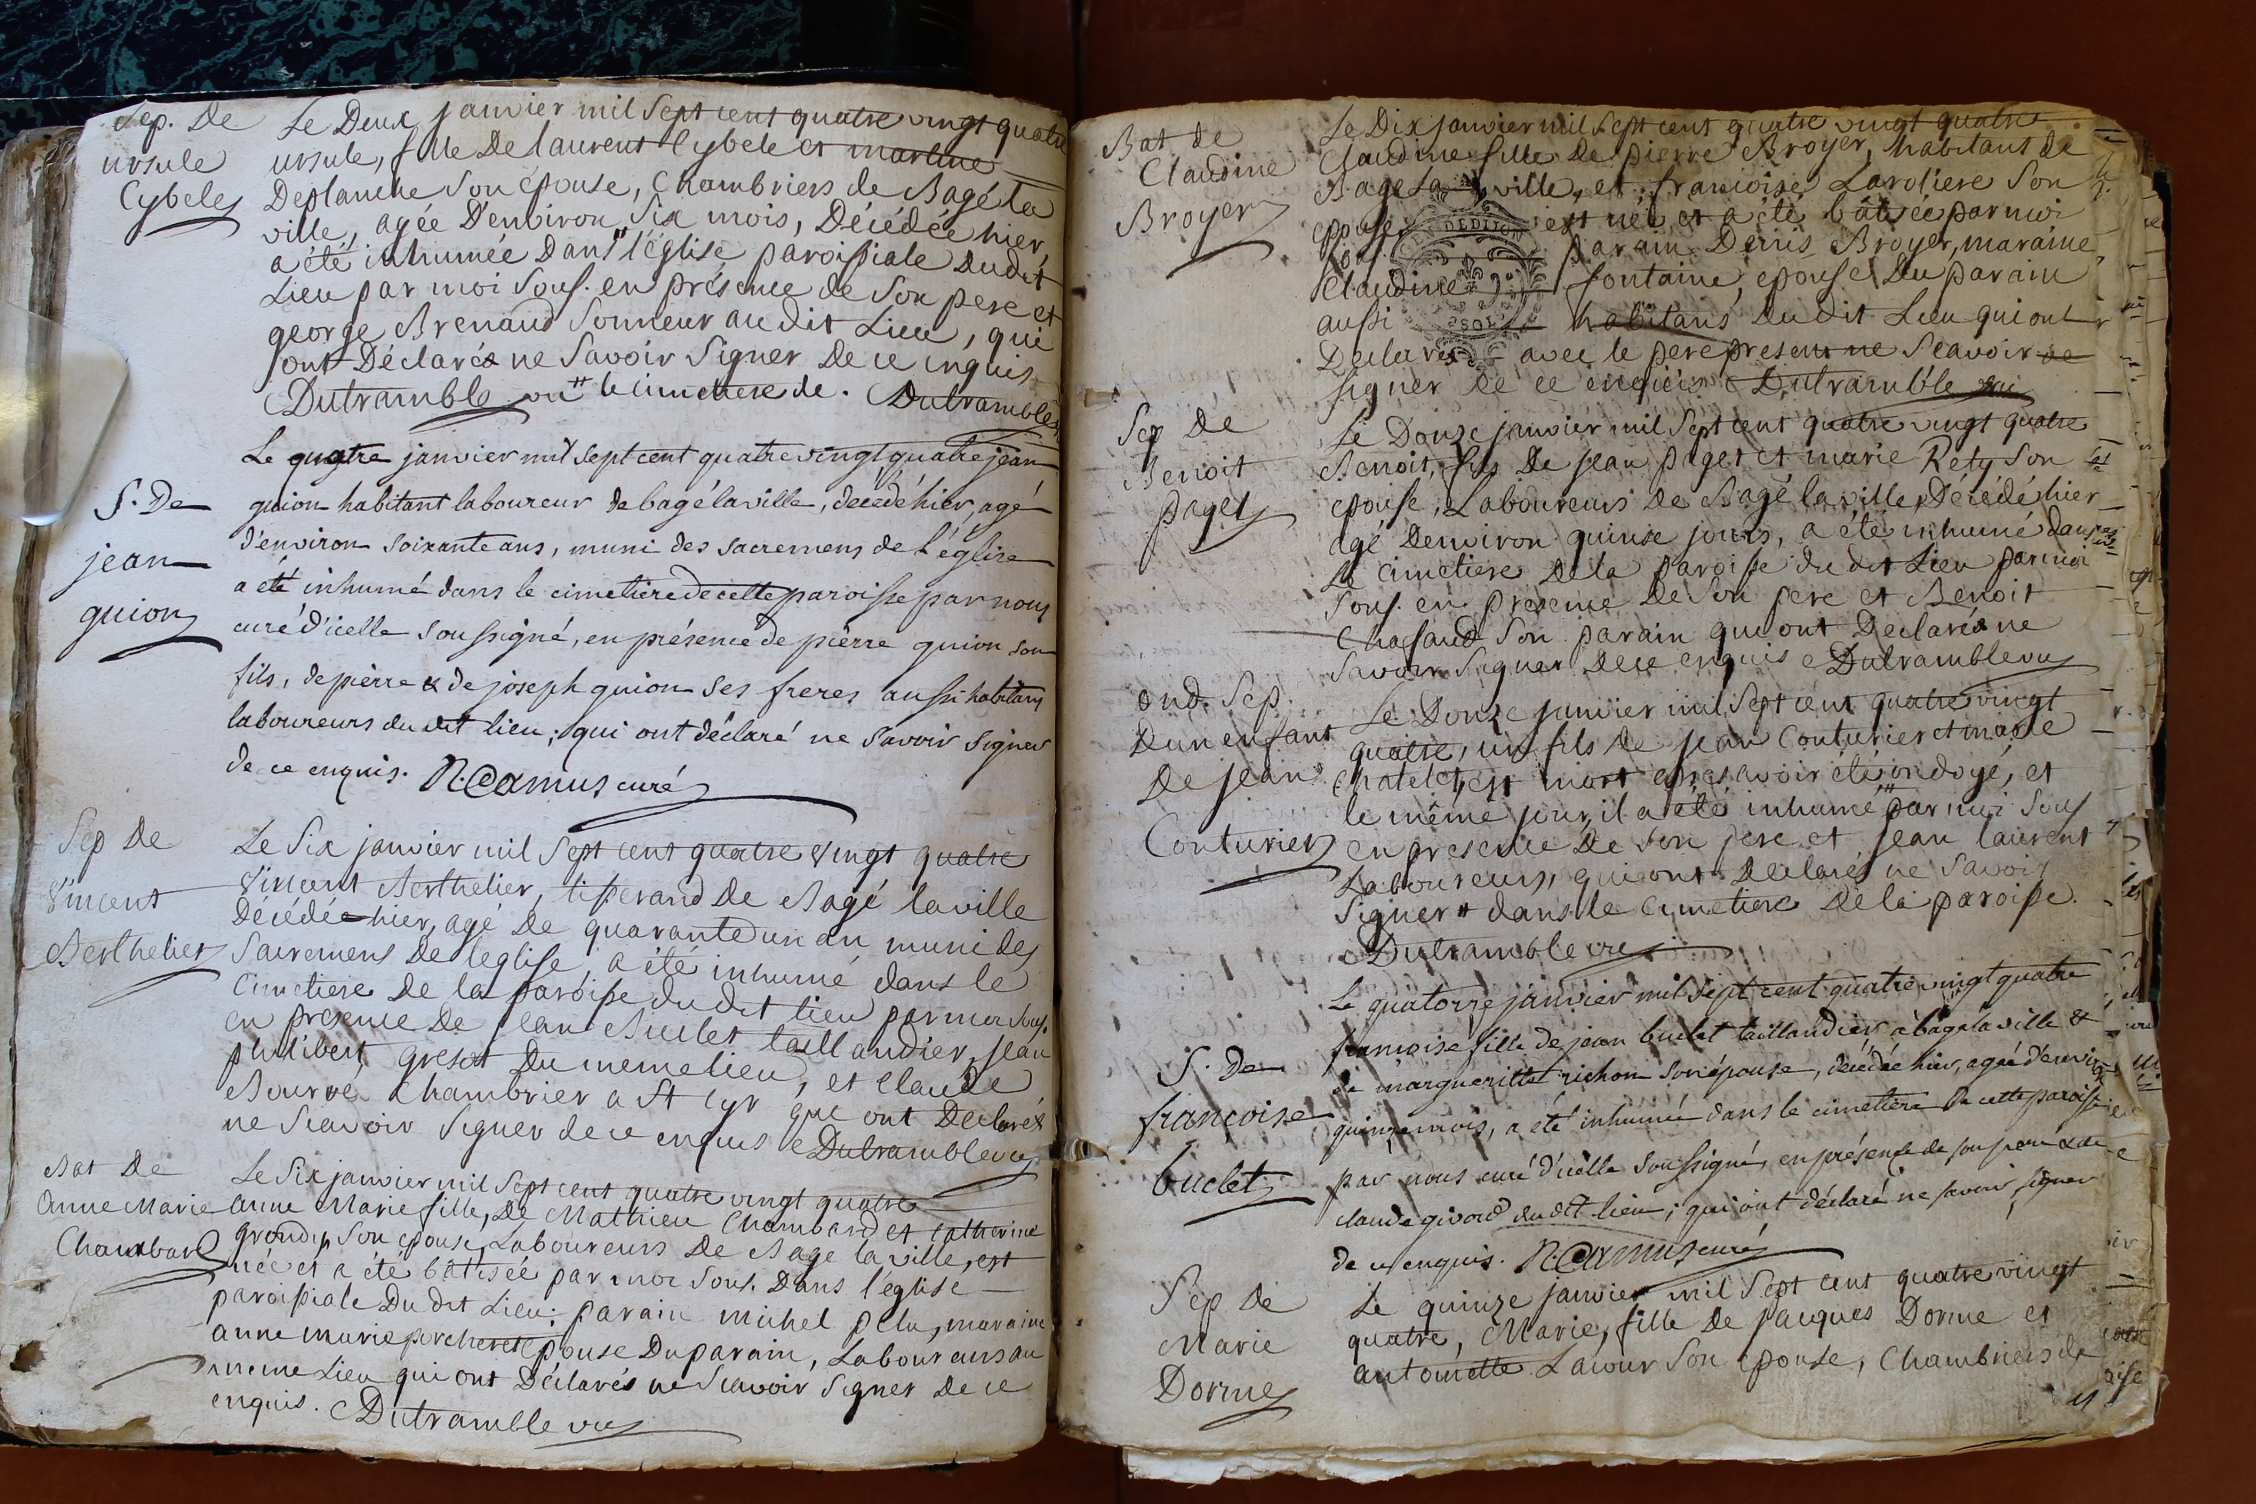 Sep. De
ursule
Cybele
Le Deux janvier mil sept cent quatre vingt quatre
ursule, fille De laurent Cybele et martine
Deplanche son épouse, Chambriers de Bagé la
ville, agée D'environ six mois, Décédée hier,
a été inhumée Dans l'église paroissiale dudit
Lieu par moi sous. en présence de son pere et
george Brenaud sonneur au dit Lieu, qui
ont Déclarés ne savoir signer De ce inquis
Dutramble vic le cimetiere de. Dutramble
S. De
jean
guion
Le quatre janvier mil sept cent quatre vingt quatre jean
guion habitant laboureur de bagé la ville, décedé hier, agé
d'environ soixante ans, muni des sacremens de l'église
a été inhumé dans le cimetiere de cette paroisse par nous
curé d'icelle soussigné, en présence de pierre guion son
fils, de pierre & de joseph guion ses freres aussi habitans
laboureurs du dit lieu; qui ont déclaré ne savoir signer
de ce enquis. N. Camus curé
Sep De
Vincent
Berthelier
Le Six janvier mil sept cent quatre vingt quatre
Vincent Berthelier, tisserand De Bagé la ville
Décédé hier, agé De quarante un an muni des
Sacremens De leglise, a été inhumé dans le
Cimetiere De la paroisse du dit lieu par moi sous.
en presence De jean Buclet taillandier, jean
philibert gresat Du meme lieu, et Claude
Bourve Chambrier a St Cyr que ont Déclarés
ne Scavoir signer de ce enquis Dutramble vic
Bat De
Anne Marie
Chambard
Le Six janvier mil sept cent quatre vingt quatre
anne Marie fille, De Mathieu Chambard et catherine
grandy son epouse, Laboureurs De Bagé la ville, est
née et a été batisée par moi sous. Dans l'église
paroissiale Du dit Lieu; parain michel pelu, maraine
anne marie porcheret epouse Du parain, Laboureurs au
meme Lieu qui ont Déclarés ne Scavoir signer De ce
enquis. Dutramble vic
Bat de
Claudine
Broyer
Le Dix janvier mil sept cent quatre vingt quatre
Claudine fille De pierre Broyer, habitans de
Bagé la ville, et francoise Laroliere son
epouse est née, et a été batisée par moi
sous. parain Denis Broyer, maraine
Claudine fontaine, epouse Du parain
aussi habitans du dit Lieu qui ont
Declarés avec le pere present ne Scavoir
signer de ce enquis Dutramble vic
Sep De
Benoit
paget
Le Douze janvier mil sept cent quatre vingt quatre
Benoit, fils De jean paget et marie Rety son
epouse, Laboureurs De Bagé la ville, Décédé hier
agé Denviron quinze jours, a été inhumé dans
Le cimetiere De la paroisse du dit Lieu par moi
sous. en presence De son pere et Benoit
Chassaud son parain qui ont Declarés ne
savoir signer De ce enquis Dutramble vic
ond. Sep.
Dun enfant
De jean
Couturier
Le Douze janvier mil sept cent quatre vingt
quatre, un fils De jean Couturier et marie
Chatelet, est mort apres avoir été ondoyé, et
le même jour, il a été inhumé par moi sous
en presence De son pere et jean laurent
Laboureurs, qui ont Declarés ne savoir
signer dans le Cimetiere De la paroisse.
Dutramble vic
S. De
françoise
buclet
Le quatorze janvier mil sept cent quatre vingt quatre
francoise fille de jean buclet taillandier à bagé la ville &
de marguerite richon son épouse, décédée hier, agée d'environ
quinze mois, a été inhumée dans le cimetiere de cette paroisse
par nous curé d'icelle soussigné, en présence de son pere & de
claude givord du dit lieu; qui ont déclaré ne savoir signer
de ce enquis. N. Camus curé
Sep De
Marie
Dorme
Le quinze janvier mil sept cent quatre vingt
quatre, Marie, fille De jacques Dorme et
antoinette Lacour son epouse, Chambriers de